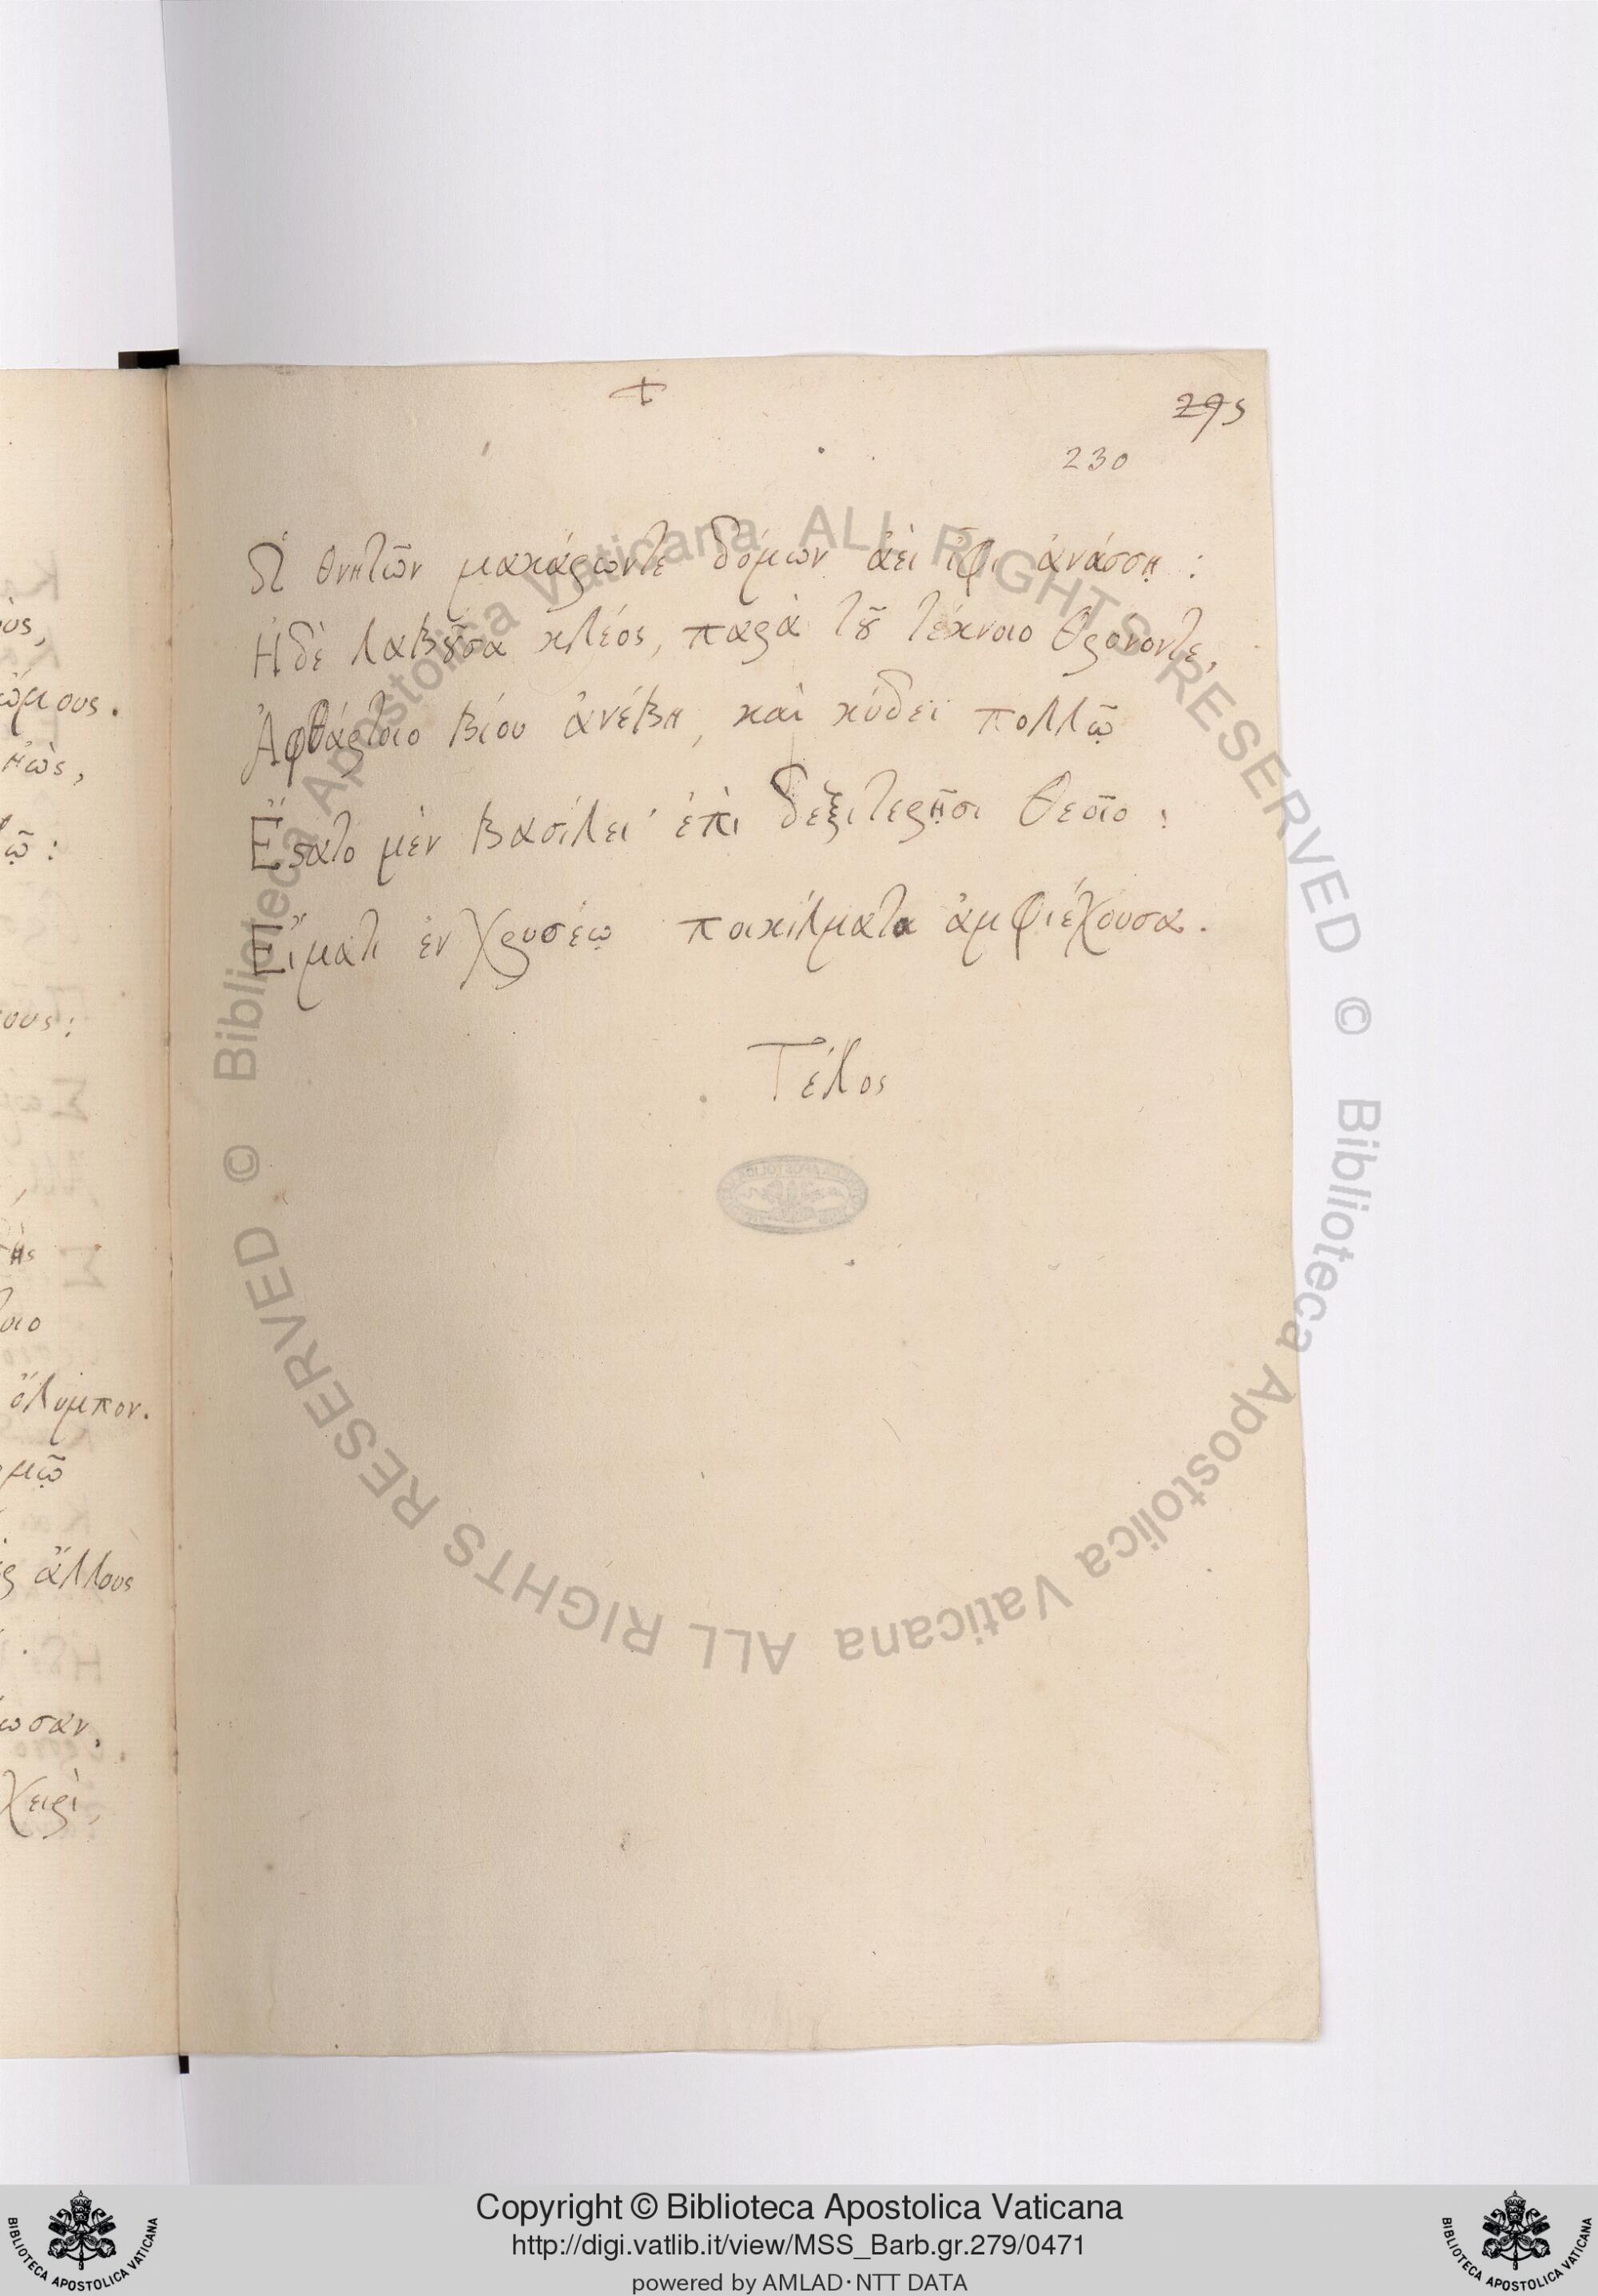 295
230
Δἰ θνητῶν μακάρωντε δόμων ἀεὶ ἶφι ἀνάσσῃ :
Ἡδὲ λαβοῦσα κλέος, παρὰ τοῦ τέκνοιο θρόνοντε,
Ἀφθάρτοιο βίου ἀνέβη, καὶ κύδεϊ πολλῷ
Ἕστατο μὲν βασίλει' ἐπὶ δεξιτερῇσι θεοῖο :
Εἵματι ἐν χρυσέῳ ποικίλματα ἀμφιέχουσα.
Τέλος
ους,
ώμους.
ηὼς,
ῷ :
ους :
ῆς
οιο
ὄλυμπον.
μῷ
ς ἄλλους
ωσαν,
χειρὶ,
Biblioteca Apostolica Vaticana ALL RIGHTS RESERVED ©
Biblioteca Apostolica Vaticana ALL RIGHTS RESERVED ©
Copyright © Biblioteca Apostolica Vaticana
http://digi.vatlib.it/view/MSS_Barb.gr.279/0471
powered by AMLAD·NTT DATA
BIBLIOTECA APOSTOLICA VATICANA
BIBLIOTECA APOSTOLICA VATICANA